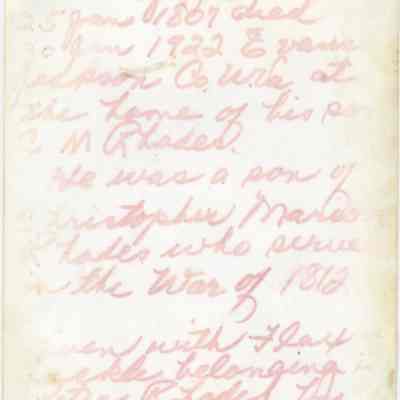 25 Jan 1867 died
30 Jan 1922 Evans
Co. W.Va at
the home of his son
C M Rhodes.
He was a son of
Christopher Marion
Rhodes who serve
in the War of 1812
with Flax
belonging
Rhodes